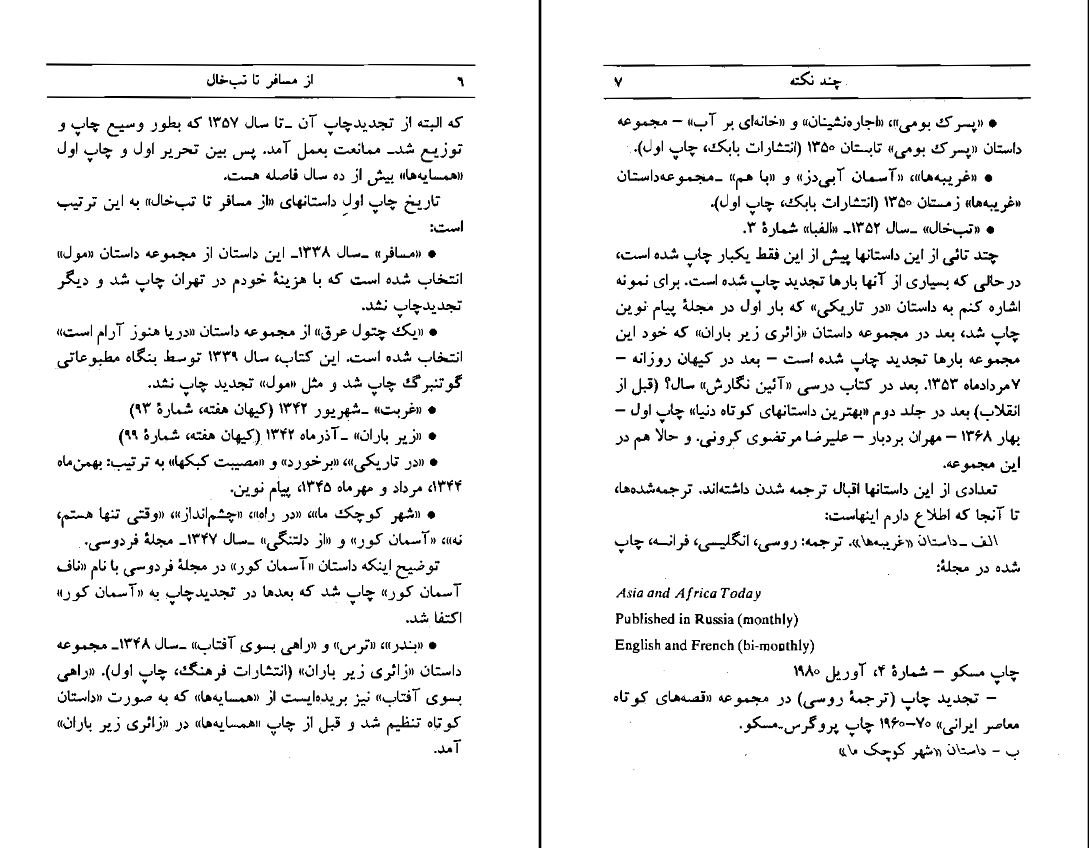 ۶ از مسافر تا تب‌خال
که البته از تجدیدچاپ آن ـ تا سال ۱۳۵۷ که بطور وسیع چاپ و
توزیع شدـ ممانعت بعمل آمد. پس بین تحریر اول و چاپ اول
«همسایه‌ها» بیش از ده سال فاصله هست.
تاریخ چاپ اول داستانهای «از مسافر تا تب‌خال» به این ترتیب
است:
● «مسافر» ـ سال ۱۳۳۸ـ این داستان از مجموعه داستان «مول»
انتخاب شده است که با هزینهٔ خودم در تهران چاپ شد و دیگر
تجدیدچاپ نشد.
● «یک چتول عرق» از مجموعه داستان «دریا هنوز آرام است»
انتخاب شده است. این کتاب، سال ۱۳۳۹ توسط بنگاه مطبوعاتی
گوتنبرگ چاپ شد و مثل «مول» تجدید چاپ نشد.
● «غربت» ـ شهریور ۱۳۴۲ (کیهان هفته، شمارهٔ ۹۳)
● «زیر باران» ـ آذرماه ۱۳۴۲ (کیهان هفته، شمارهٔ ۹۹)
● «در تاریکی»، «برخورد» و «مصیبت کبکها» به ترتیب: بهمن‌ماه
۱۳۴۴، مرداد و مهرماه ۱۳۴۵، پیام نوین.
● «شهر کوچک ما»، «در راه»، «چشم‌انداز»، «وقتی تنها هستم،
نه»، «آسمان کور» و «از دلتنگی» ـ سال ۱۳۴۷ـ مجلهٔ فردوسی.
توضیح اینکه داستان «آسمان کور» در مجلهٔ فردوسی با نام «ناف
آسمان کور» چاپ شد که بعدها در تجدیدچاپ به «آسمان کور»
اکتفا شد.
● «بندر»، «ترس» و «راهی بسوی آفتاب» ـ سال ۱۳۴۸ـ مجموعه
داستان «زائری زیر باران» (انتشارات فرهنگ، چاپ اول). «راهی
بسوی آفتاب» نیز بریده‌ایست از «همسایه‌ها» که به صورت «داستان
کوتاه تنظیم شد و قبل از چاپ «همسایه‌ها» در «زائری زیر باران»
آمد.
چند نکته ۷
● «پسرک بومی»، «اجاره‌نشینان» و «خانه‌ای بر آب» – مجموعه
داستان «پسرک بومی» تابستان ۱۳۵۰ (انتشارات بابک، چاپ اول).
● «غریبه‌ها»، «آسمان آبی‌دز» و «با هم» ـ مجموعه‌داستان
«غریبه‌ها» زمستان ۱۳۵۰ (انتشارات بابک، چاپ اول).
● «تب‌خال» ـ سال ۱۳۵۲ـ «الفبا» شمارهٔ ۳.
چند تائی از این داستانها پیش از این فقط یکبار چاپ شده است،
درحالی که بسیاری از آنها بارها تجدید چاپ شده است. برای نمونه
اشاره کنم به داستان «در تاریکی» که بار اول در مجلهٔ پیام نوین
چاپ شد، بعد در مجموعه داستان «زائری زیر باران» که خود این
مجموعه بارها تجدید چاپ شده است – بعد در کیهان روزانه –
۷مردادماه ۱۳۵۳. بعد در کتاب درسی «آئین نگارش» سال؟ (قبل از
انقلاب) بعد در جلد دوم «بهترین داستانهای کوتاه دنیا» چاپ اول –
بهار ۱۳۶۸ – مهران بردبار – علیرضا مرتضوی کرونی. و حالا هم در
این مجموعه.
تعدادی از این داستانها اقبال ترجمه شدن داشته‌اند. ترجمه‌شده‌ها،
تا آنجا که اطلاع دارم اینهاست:
الف ـ داستان «غریبه‌ها». ترجمه: روسی، انگلیسی، فرانسه، چاپ
شده در مجلهٔ:
Asia and Africa Today
Published in Russia (monthly)
English and French (bi-monthly)
چاپ مسکو – شمارهٔ ۴، آوریل ۱۹۸۰
– تجدید چاپ (ترجمهٔ روسی) در مجموعه «قصه‌های کوتاه
معاصر ایرانی» ۷۰–۱۹۶۰ چاپ پروگرس ـ مسکو.
ب – داستان «شهر کوچک ما»